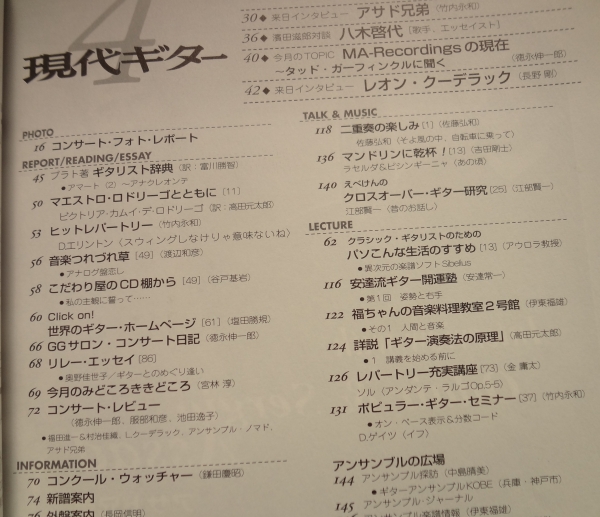 4
現代ギター
30◆ 来日インタビュー アサド兄弟(竹内永和)
36◆ 濱田滋郎対談 八木啓代[歌手、エッセイスト]
40◆ 今月のTOPIC MA-Recordingsの現在
〜タッド・ガーフィンクルに聞く (徳永伸一郎)
42◆ 来日インタビュー レオン・クーデラック(長野 剛)
PHOTO
16 コンサート・フォト・レポート
REPORT/READING/ESSAY
45 プラト著 ギタリスト辞典(訳:富川勝智)
●アマート(2)〜アナクレオンテ
50 マエストロ・ロドリーゴとともに[11]
ビクトリア・カムイ・デ・ロドリーゴ(訳:高田元太郎)
53 ヒットレパートリー(竹内永和)
D.エリントン〈スウィングしなけりゃ意味ないね〉
56 音楽つれづれ草[49](渡辺和彦)
●アナログ盤恋し
58 こだわり屋のCD棚から[49](谷戸基岩)
●私の主観に誓って……
60 Click on!
世界のギター・ホームページ[61](塩田勝規)
66 GGサロン・コンサート日記(徳永伸一郎)
68 リレー・エッセイ[86]
●奥野佳世子／ギターとのめぐり逢い
69 今月のみどころききどころ(宮林 淳)
72 コンサート・レビュー
(徳永伸一郎、服部和彦、池田逸子)
●福田進一&村治佳織、L.クーデラック、アンサンブル・ノマド、
アサド兄弟
INFORMATION
70 コンクール・ウォッチャー(鎌田慶昭)
74 新譜案内
76 外盤案内(長岡信明)
TALK & MUSIC
118 二重奏の楽しみ[1](佐藤弘和)
佐藤弘和〈そよ風の中、自転車に乗って〉
136 マンドリンに乾杯![13](吉田剛士)
ラセルダ&ピシンギーニャ〈あの頃〉
140 えべけんの
クロスオーバー・ギター研究[25](江部賢一)
江部賢一〈昔のお話し〉
LECTURE
62 クラシック・ギタリストのための
パソこんな生活のすすめ[13](アウロラ教授)
●異次元の楽譜ソフトSibelius
116 安達流ギター開運塾(安達常一)
●第1回 姿勢と右手
122 福ちゃんの音楽料理教室2号館(伊東福雄)
●その1 人間と音楽
124 詳説「ギター演奏法の原理」(高田元太郎)
●1 講義を始める前に
126 レパートリー充実講座[73](金 庸太)
ソル〈アンダンテ・ラルゴOp.5-5〉
131 ポピュラー・ギター・セミナー[37](竹内永和)
●オン・ベース表示&分数コード
D.ゲイツ〈イフ〉
アンサンブルの広場
144 アンサンブル探訪(中島晴美)
●ギターアンサンブルKOBE(兵庫・神戸市)
145 アンサンブル・ジャーナル
アンサンブル楽譜情報(伊東福雄)